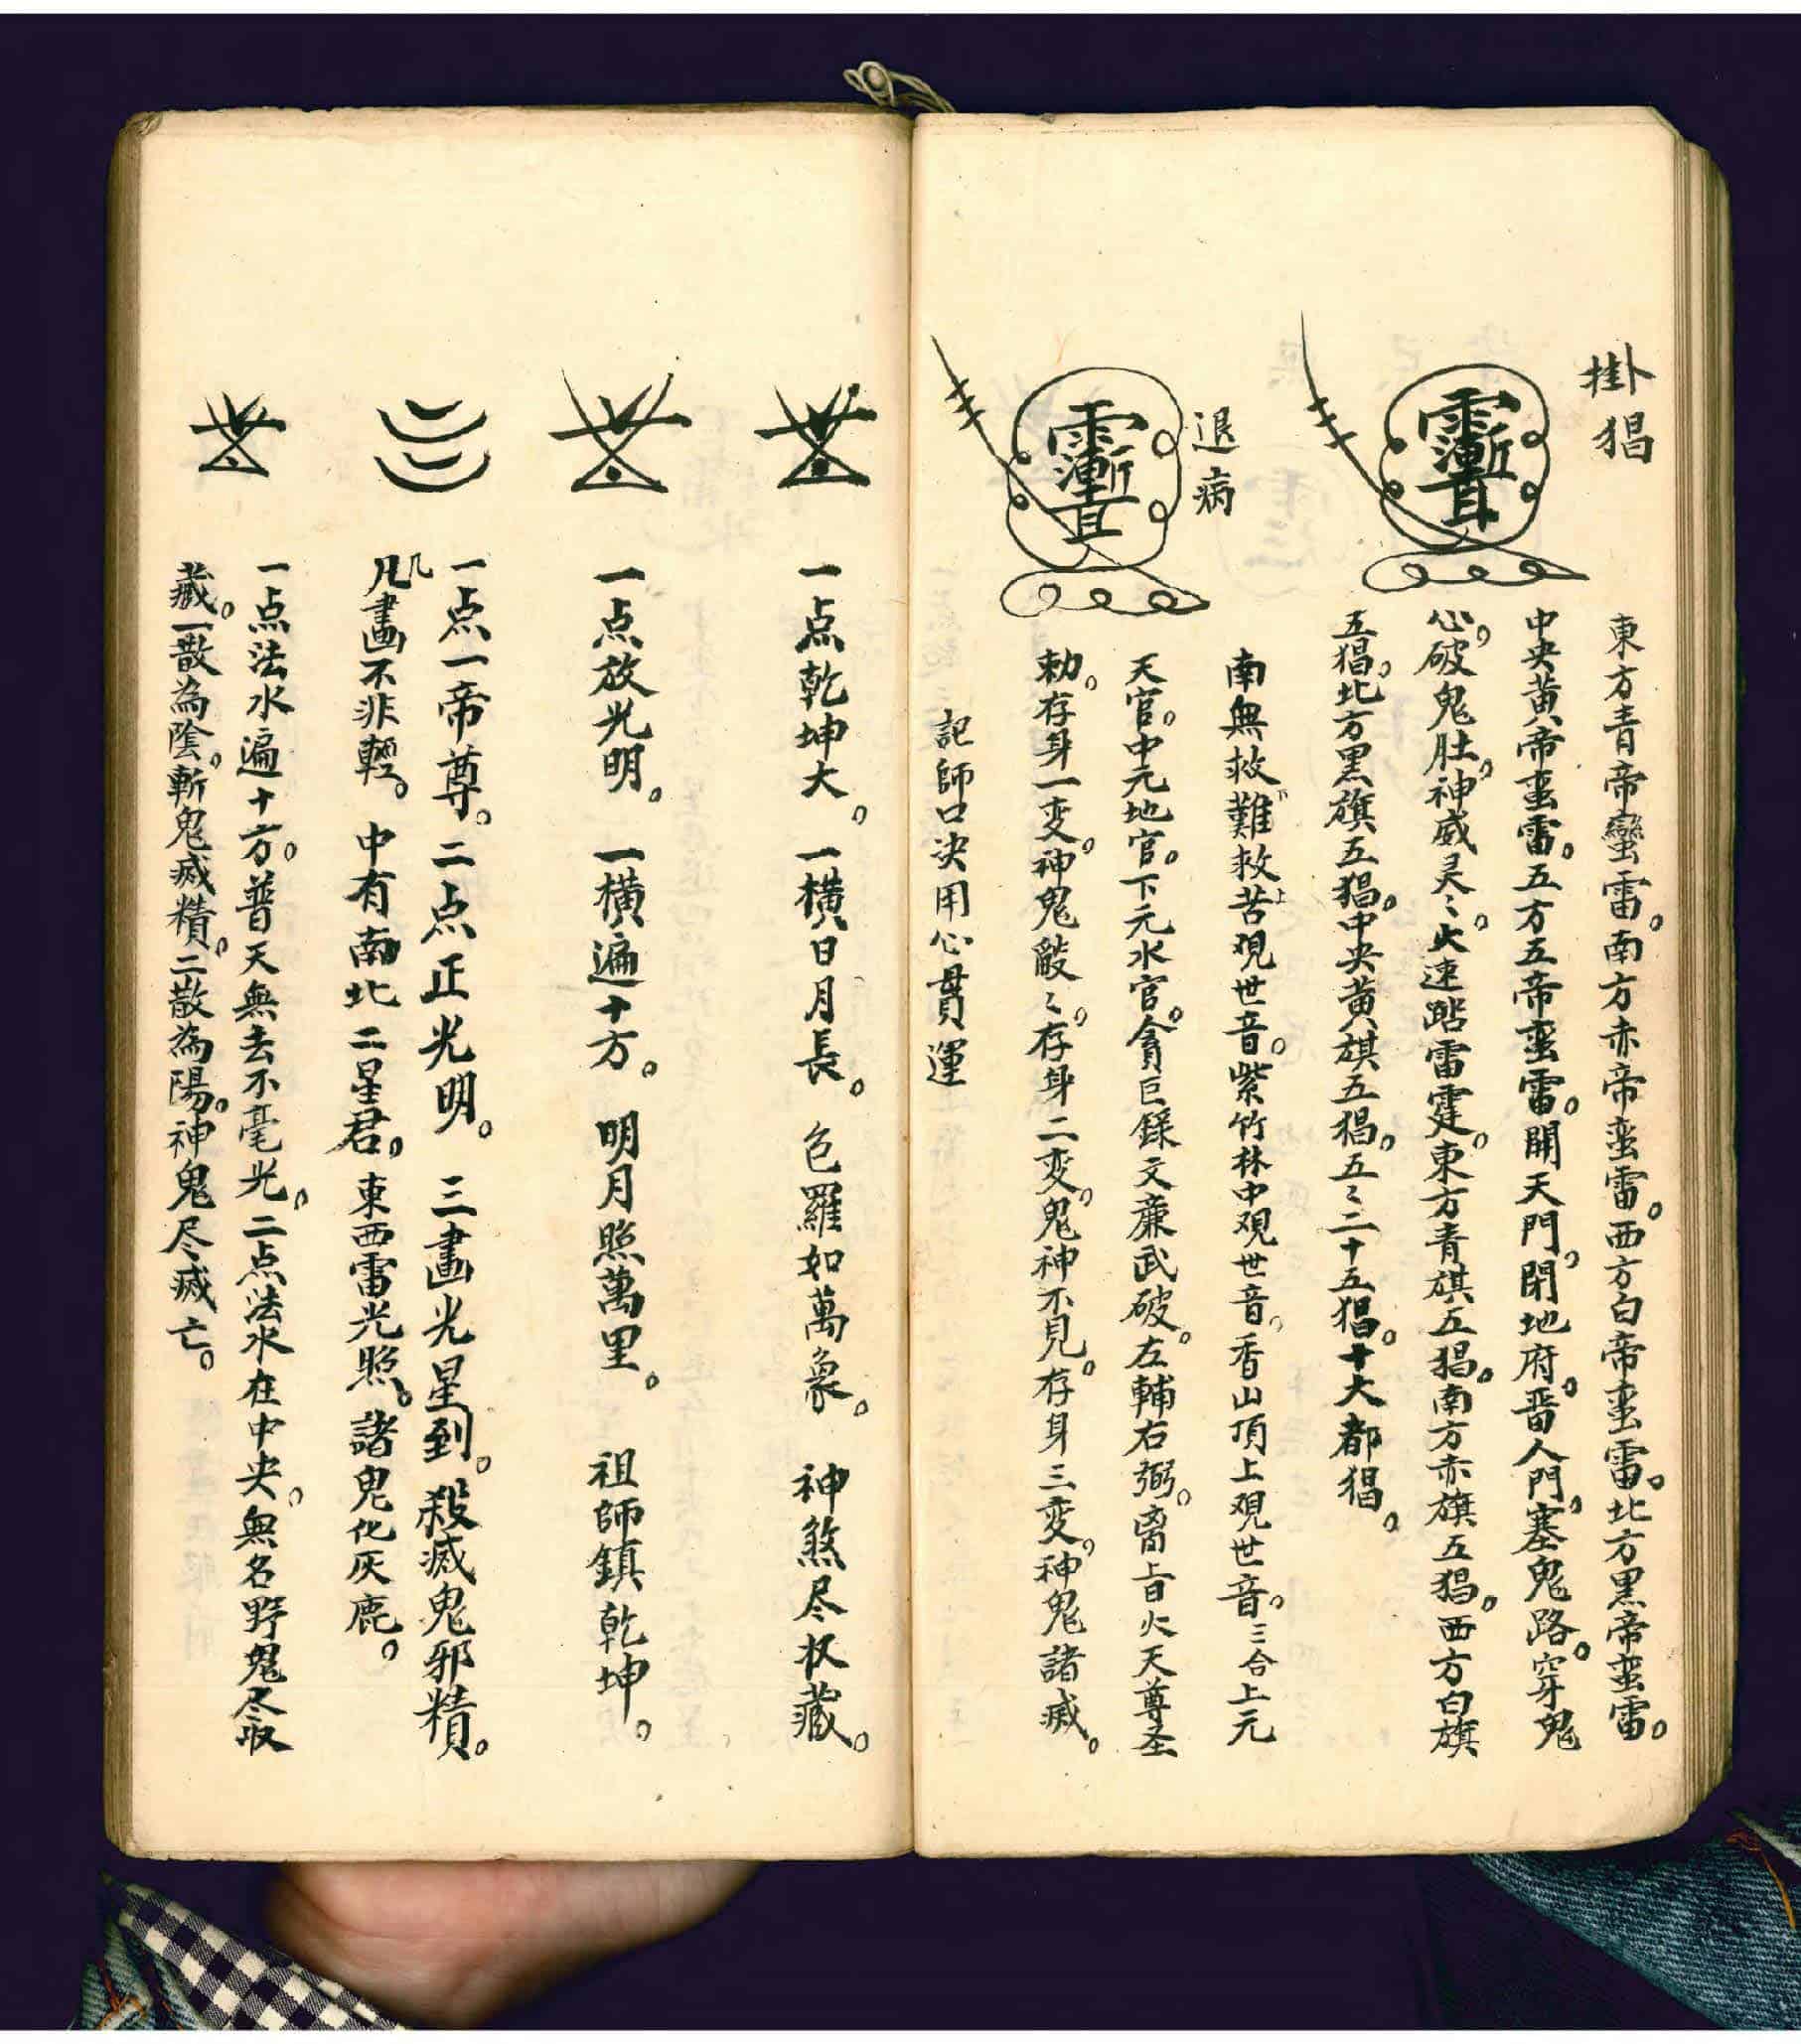 掛猖
東方青帝蠻雷。南方赤帝蛮雷。西方白帝蛮雷。北方黒帝蛮雷。
中央黄帝蛮雷。五方五帝蛮雷。開天門。閉地府。畱人門。塞鬼路。穿鬼
心。破鬼肚。神威灵〻。火速踏雷霆。東方青旗五猖。南方赤旗五猖。西方白旗
五猖。北方黒旗五猖。中央黄旗五猖。五〻二十五猖。十大都猖。
退病
南無救難救苦观世音。紫竹林中观世音。香山頂上观世音。三合上元
天官。中元地官。下元水官。貪巨録文廉武破。左輔右弼。火天尊圣
勅。存身一变。神鬼毀〻。存身二变。鬼神不見。存身三变。神鬼諸滅。
記師口决用心貫運
一点乾坤大。一橫日月長。色羅如萬象。神煞尽收藏。
一点放光明。一橫遍十方。明月照萬里。祖師鎮乾坤。
一点一帝尊。二点正光明。三畫光星到。殺滅鬼邪精。
凡畫不非輕。中有南北二星君。東西雷光照。諸鬼化灰鹿。
一点法水遍十方。普天無去不毫光。二点法水在中央。無名野鬼尽收
藏。一散為陰。斬鬼滅精。二散為陽。神鬼尽滅亡。